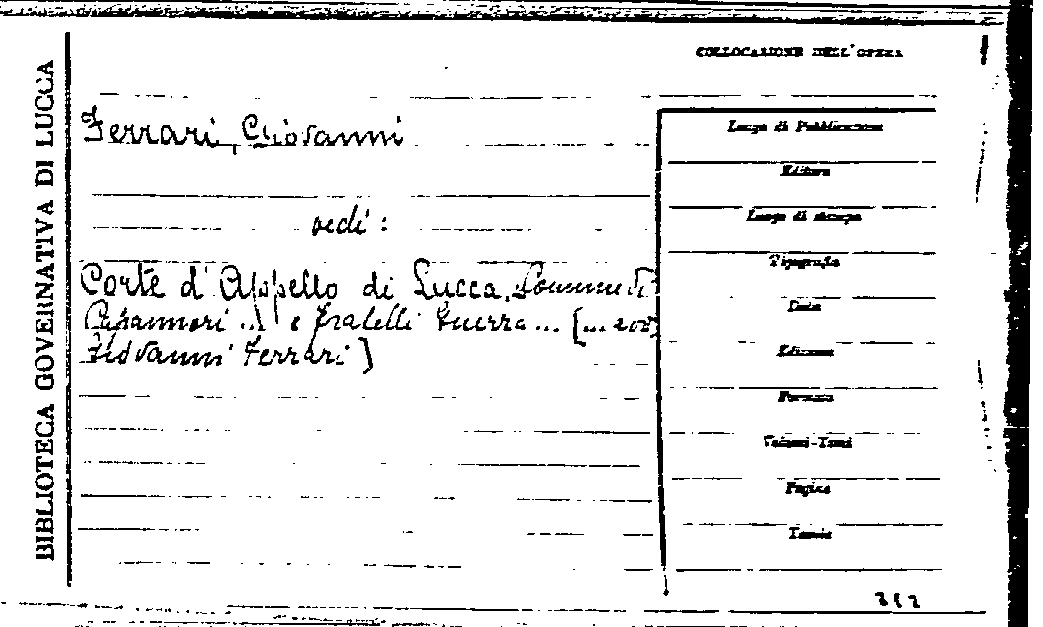 BIBLIOTECA GOVERNATIVA DI LUCCA
COLLOCAZIONE DELL'OPERA
Ferrari, Giovanni
vedi:
Corte d'Appello di Lucca.
e fratelli Guerra... [...
Giovanni Ferrari]
Luogo di Pubblicazione
Editore
Luogo di stampa
Tipografia
Data
Edizione
Formato
Volumi-Tomi
Pagine
Tavole